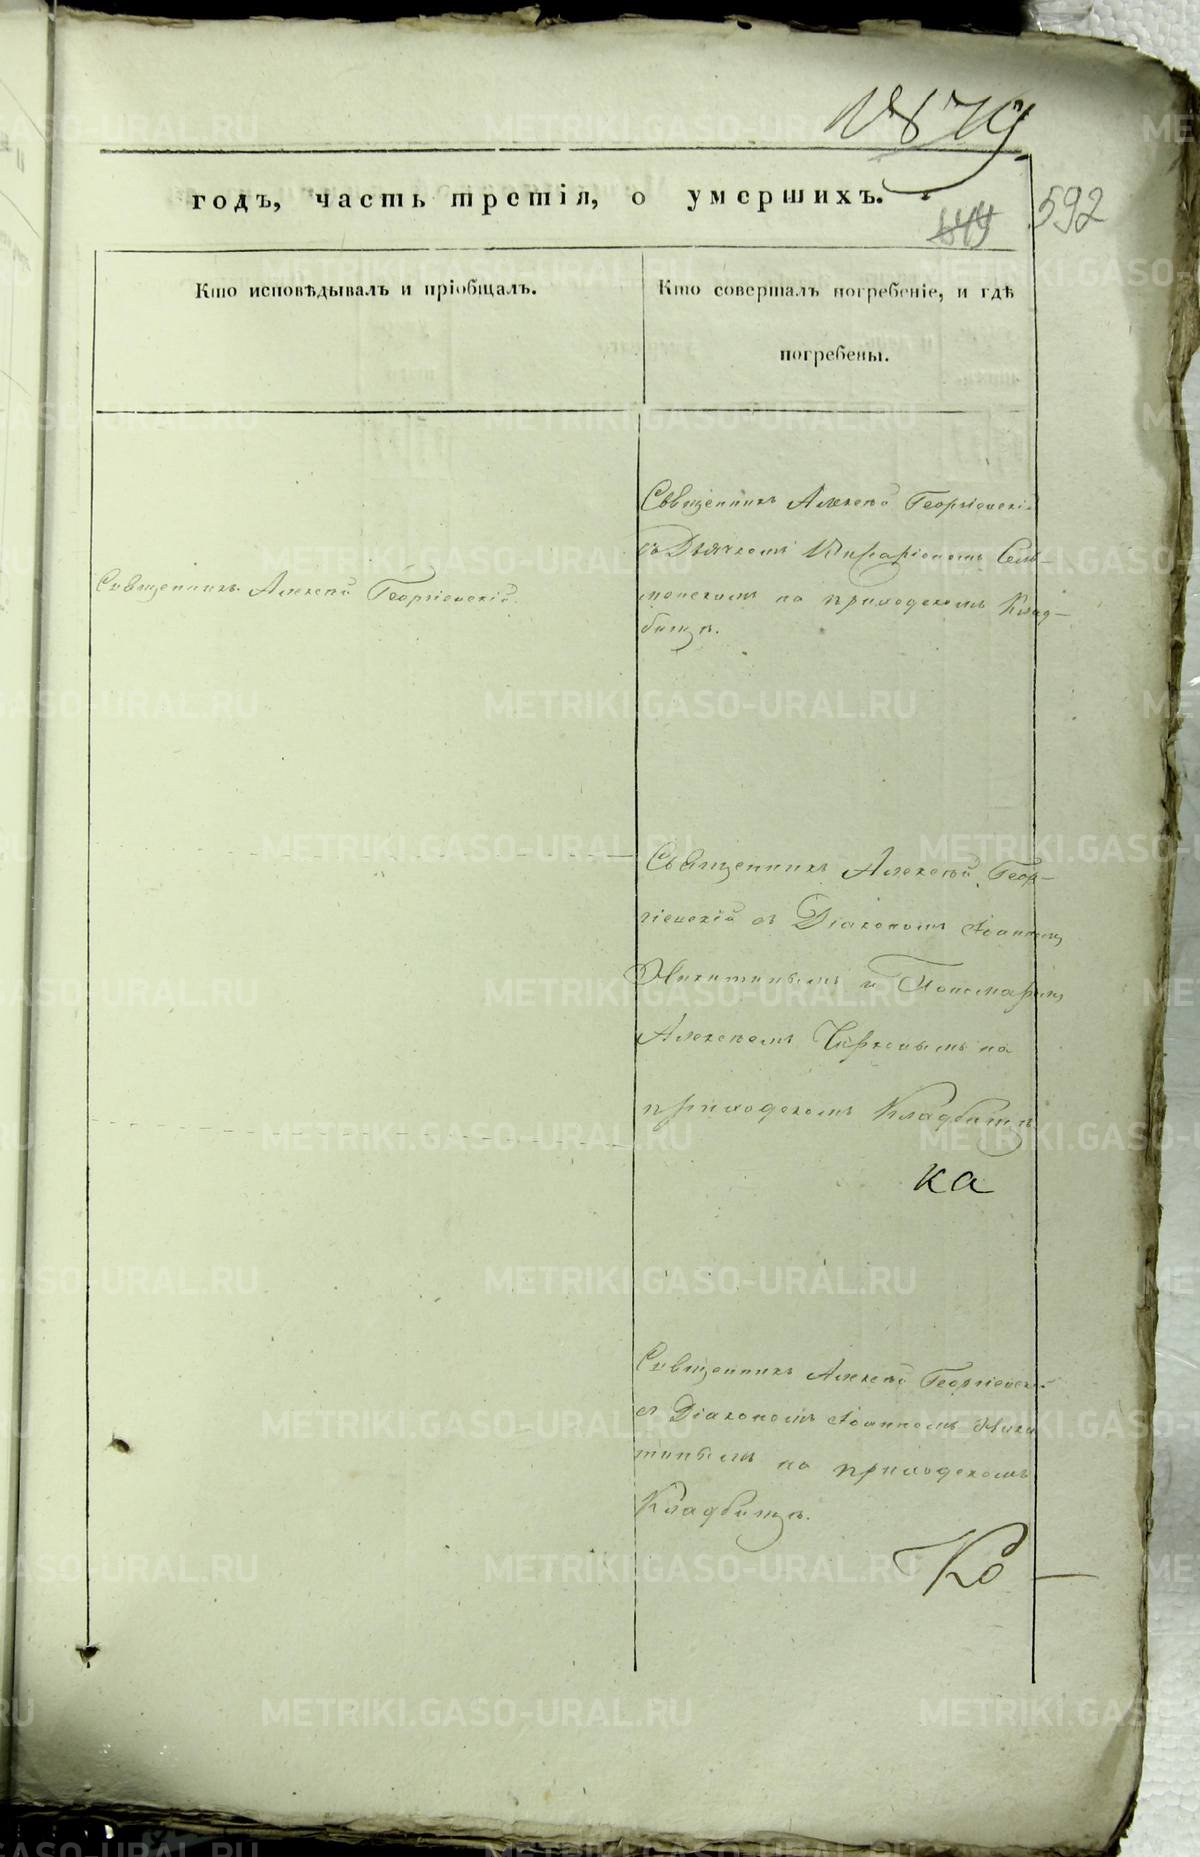 № 879
годъ, часть третія, о умершихъ.
644
592
Кто исповѣдывалъ и пріобщалъ.
Кто совершалъ погребеніе, и гдѣ
погребены.
Священникъ Алексѣй Георгіевскій.
Священникъ Алексѣй Георгіевскій
съ Дьячкомъ
на приходскомъ Клад-
бищѣ.
Священникъ Алексѣй Геор-
гіевскій съ Діакономъ Іоанномъ
Никитинымъ и Пономаремъ
Алексѣемъ на
приходскомъ Кладбищѣ
ка
Священникъ Алексѣй Георгіевскій
съ Діакономъ Іоанномъ Ники
тинымъ на приходскомъ
Кладбищѣ.
Ко—
METRIKI.GASO-URAL.RU